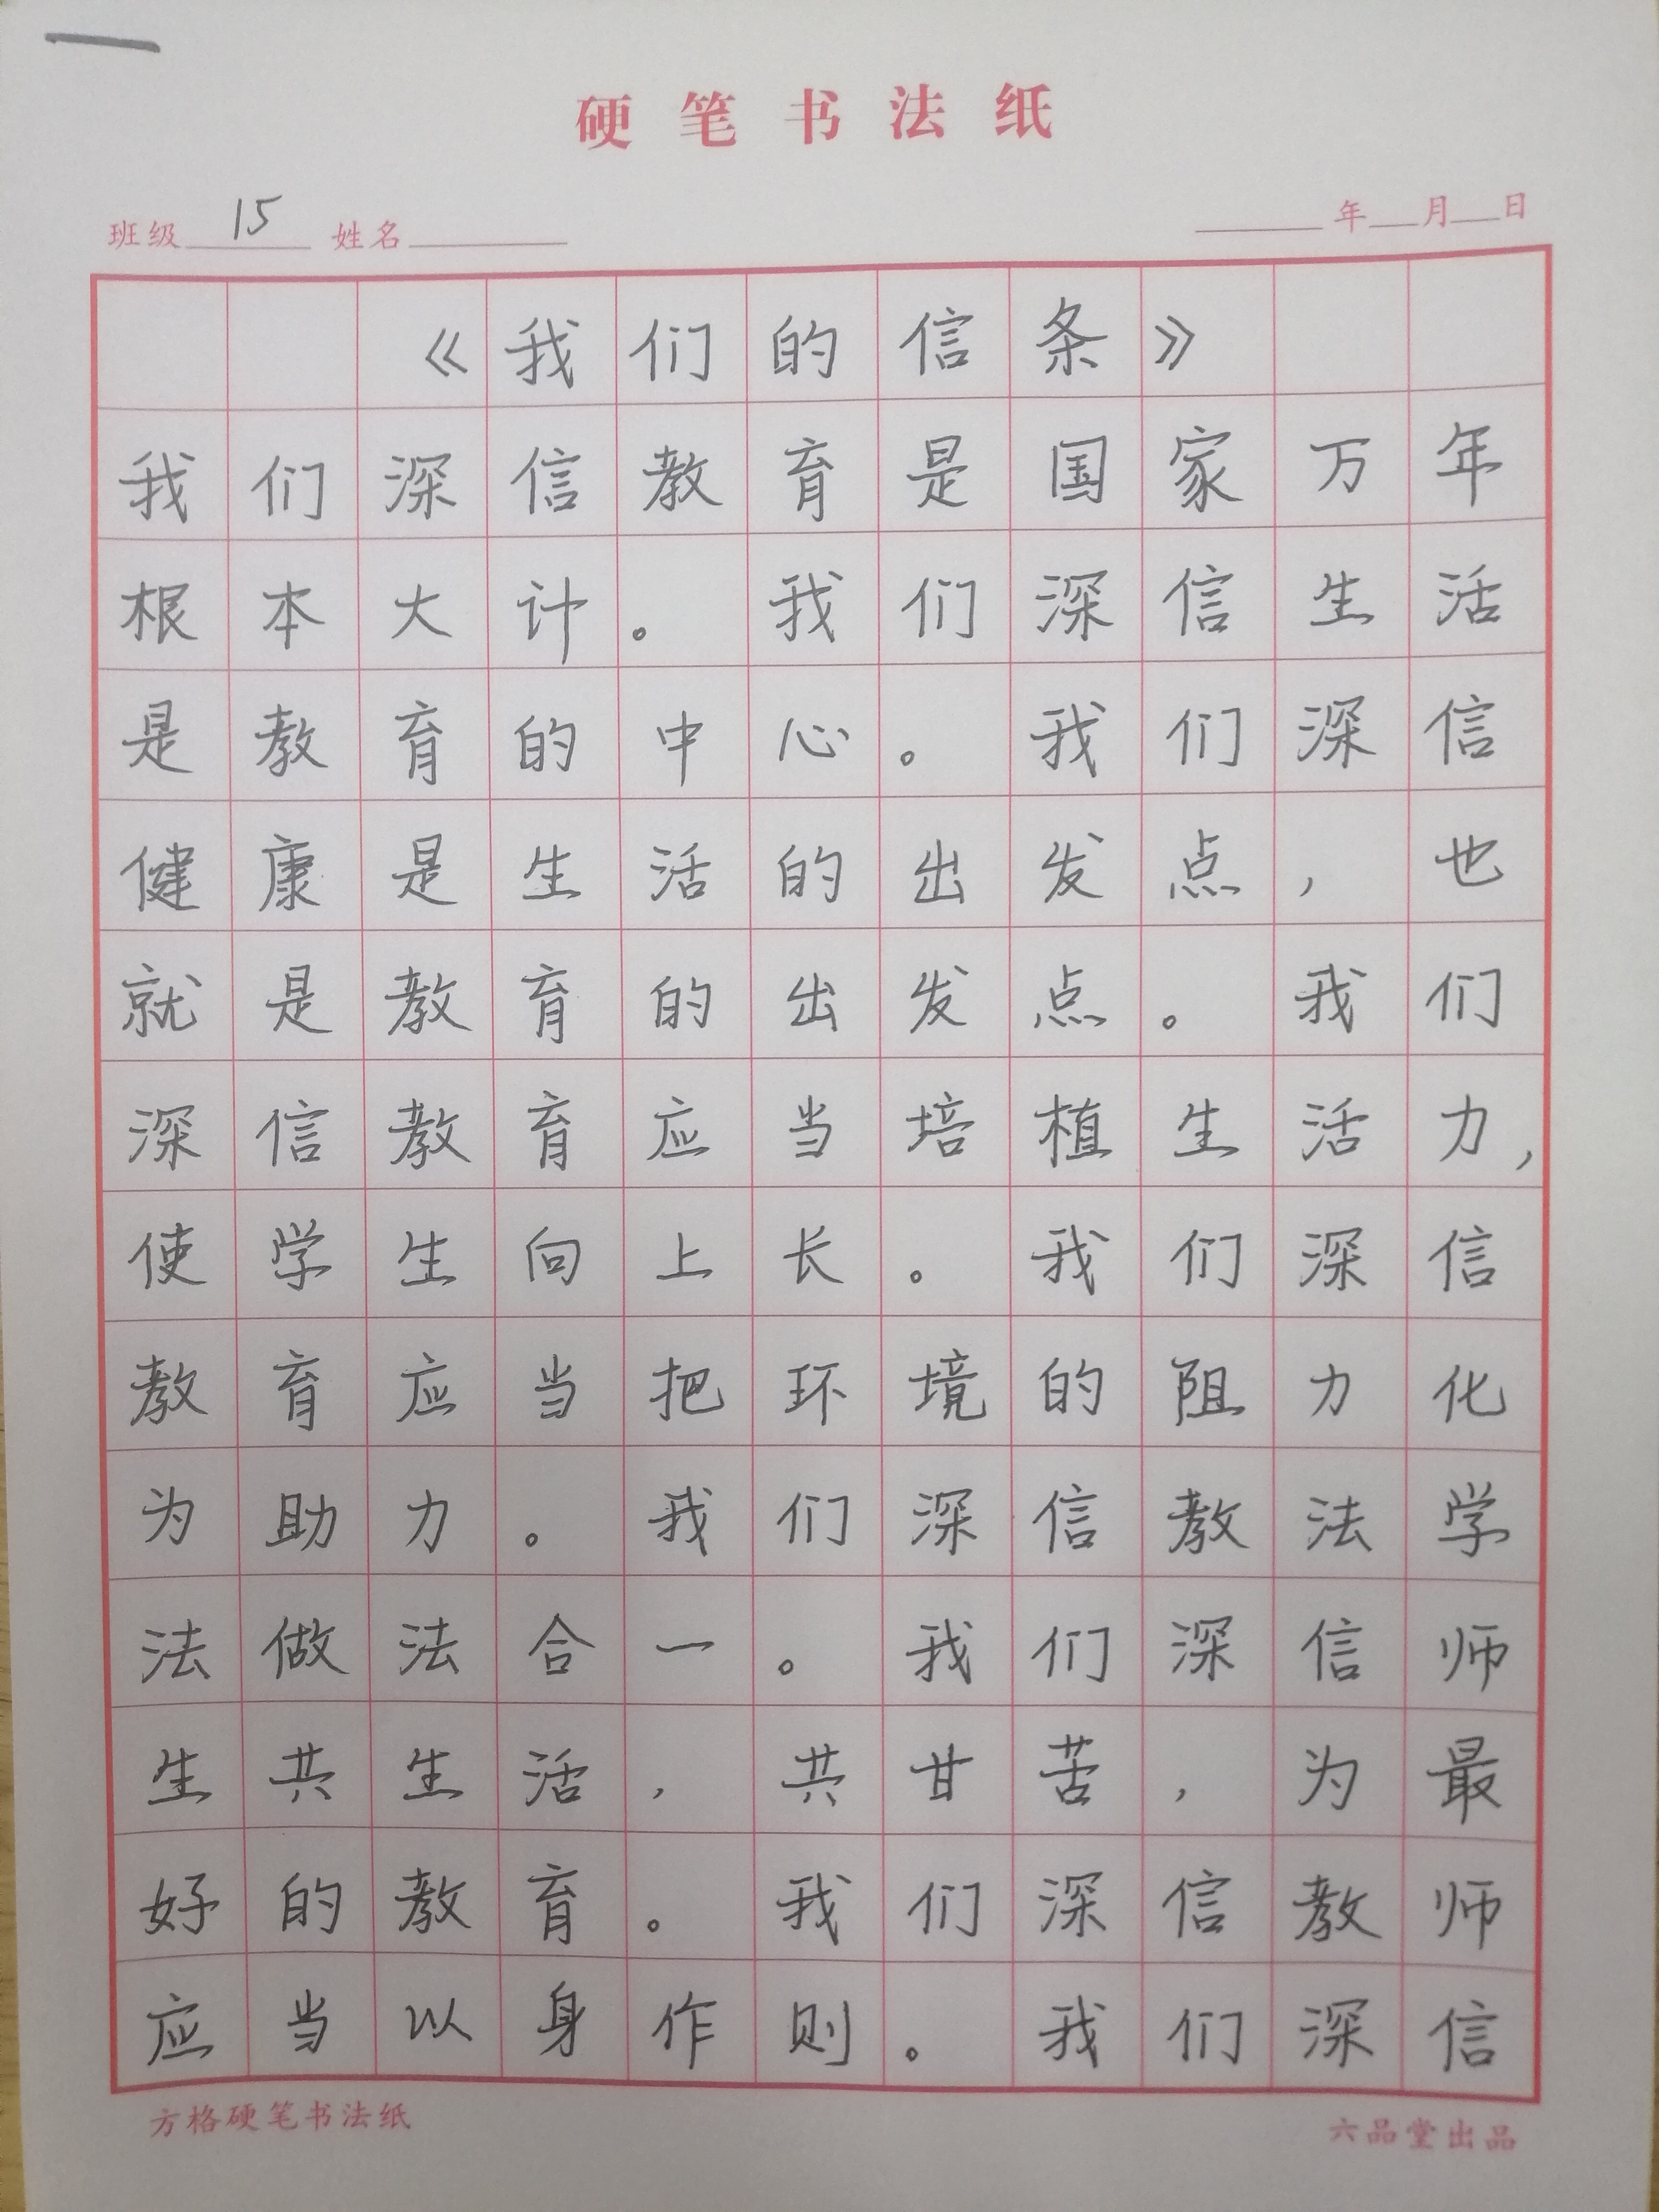 硬笔书法纸
班级 15 姓名 年 月 日
《我们的信条》
我们深信教育是国家万年
根本大计。我们深信生活
是教育的中心。我们深信
健康是生活的出发点，也
就是教育的出发点。我们
深信教育应当培植生活力，
使学生向上长。我们深信
教育应当把环境的阻力化
为助力。我们深信教法学
法做法合一。我们深信师
生共生活，共甘苦，为最
好的教育。我们深信教师
应当以身作则。我们深信
方格硬笔书法纸 六品堂出品